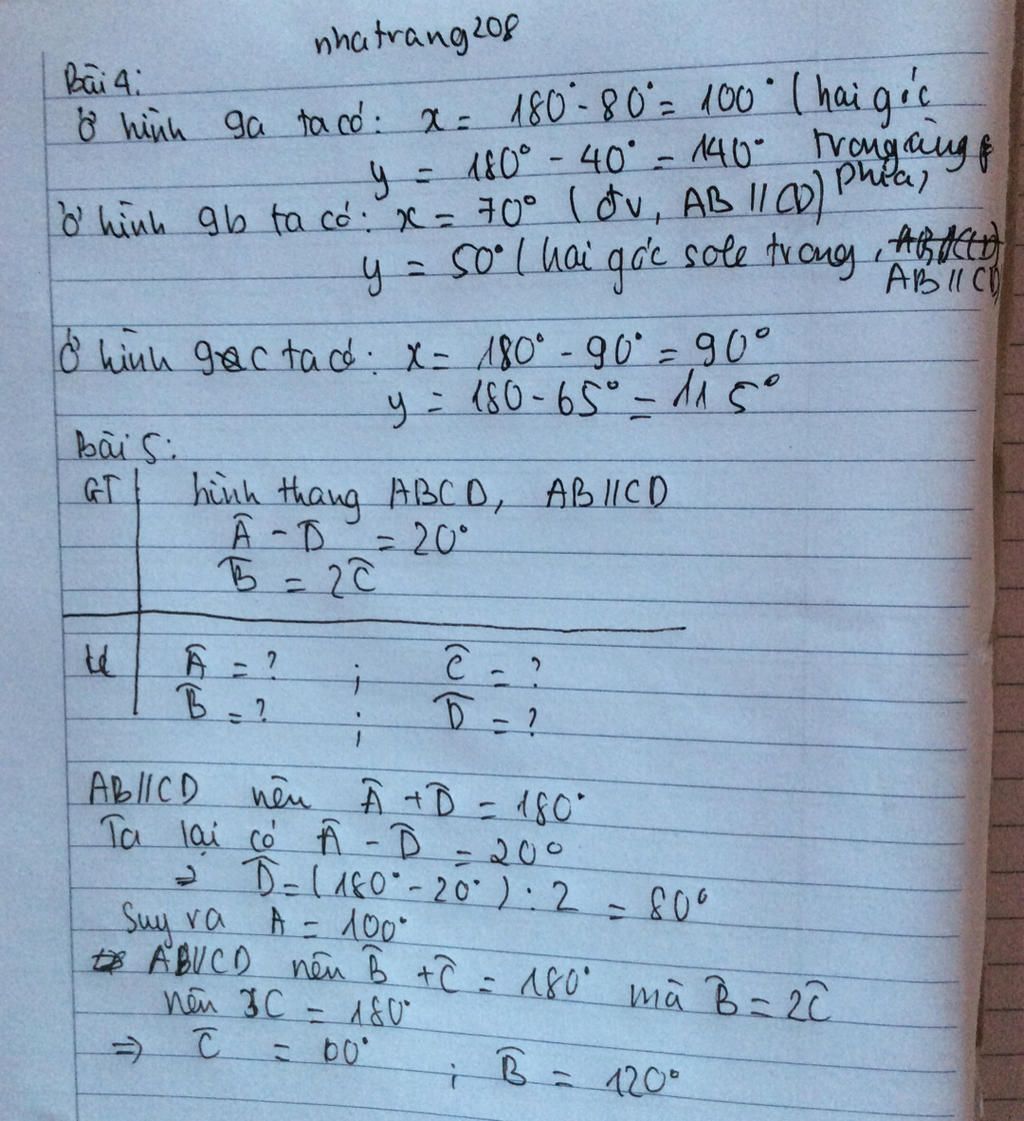 nhatrang208
Bài 4:
Ở hình 9a ta có: x = 180° - 80° = 100° (hai góc
y = 180° - 40° = 140° trong cùng
phía,
Ở hình 9b ta có: x = 70° (đv, AB // CD)
y = 50° (hai góc sole trong,
AB // CD
Ở hình 9c ta có: x = 180° - 90° = 90°
y = 180 - 65° = 115°
Bài 5:
GT hình thang ABCD, AB // CD
Â - D̂ = 20°
B̂ = 2Ĉ
KL Â = ? ; Ĉ = ?
B̂ = ? ; D̂ = ?
AB // CD nên Â + D̂ = 180°
Ta lại có Â - D̂ = 20°
⇒ D̂ = (180° - 20°) : 2 = 80°
Suy ra A = 100°
AB // CD nên B̂ + Ĉ = 180° mà B̂ = 2Ĉ
nên 3C = 180°
⇒ Ĉ = 60° ; B̂ = 120°